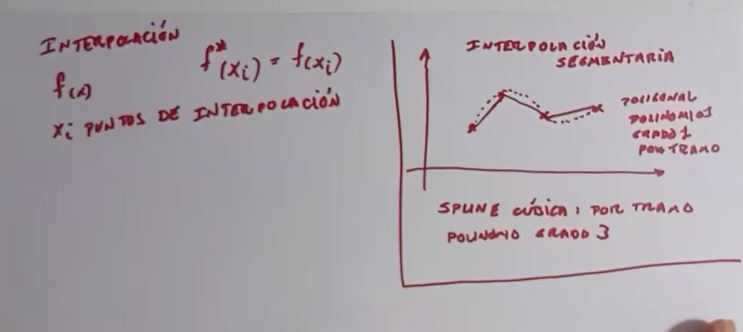 INTERPOLACIÓN
f(x) f*(xi) = f(xi)
xi PUNTOS DE INTERPOLACIÓN
INTERPOLACIÓN
SEGMENTARIA
POLIGONAL
POLINOMIOS
GRADO 1
POR TRAMO
SPLINE CÚBICA: POR TRAMO
POLINOMIO GRADO 3